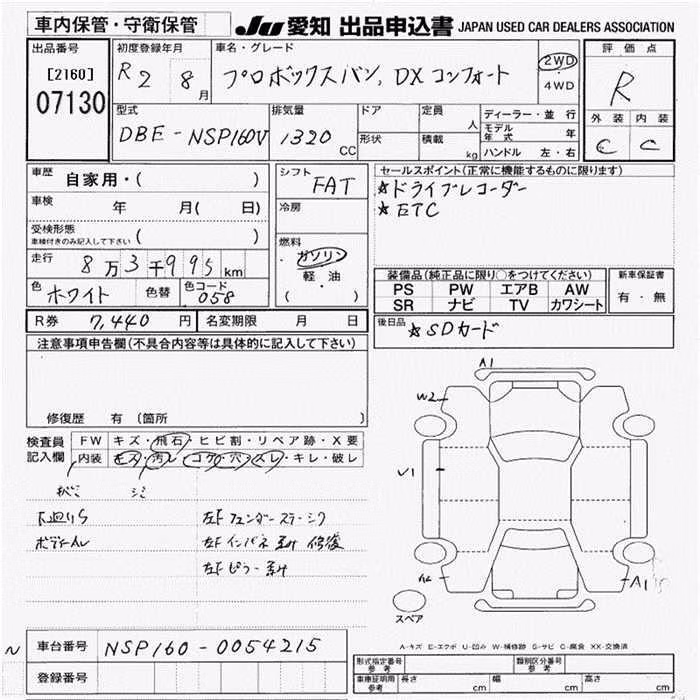 車内保管・守衛保管
JU 愛知 出品申込書 JAPAN USED CAR DEALERS ASSOCIATION
出品番号
[2160]
07130
初度登録年月
R 2 8月
車名・グレード
プロボックスバン, DX コンフォート
2WD
4WD
評価点
R
外装 内装
C C
型式
DBE-NSP160V
排気量
1320 CC
ドア
形状
定員 人
積載 kg
ディーラー・並行
モデル年式 年
ハンドル 左・右
車歴 自家用・( )
車検 年 月( 日)
受検形態
車検付きのみ記入して下さい ( )
走行 8万3千995 km
色 ホワイト 色替 色コード 058
シフト
FAT
冷房
燃料
・ガソリン
軽・油
( )
セールスポイント(正常に機能するものに限ります)
★ドライブレコーダー
★ETC
装備品(純正品に限り○をつけてください)
PS PW エアB AW
SR ナビ TV カワシート
新車保証書
有・無
R券 7,440円 名変期限 月 日
後日品 ★SDカード
注意事項申告欄(不具合内容等は具体的に記入して下さい)
修復歴 有 (箇所 )
検査員記入欄
FW キズ・飛石・ヒビ割・リペア跡・X要
内装 キズ・汚レ・コゲ・穴・スレ・キレ・破レ
下廻りS
左Fフェンダーステー
左Fインパネ 修復
左Fピラー
A1
W2
U1
A1
スペア
A-キズ E-エクボ U-凹み W-補修跡 S-サビ C-腐食 XX-交換済
N
車台番号 NSP160-0054215
登録番号
形式指定番号 参考
類別区分番号 参考
車庫証明用 参考 長さ cm 幅 cm 高さ cm